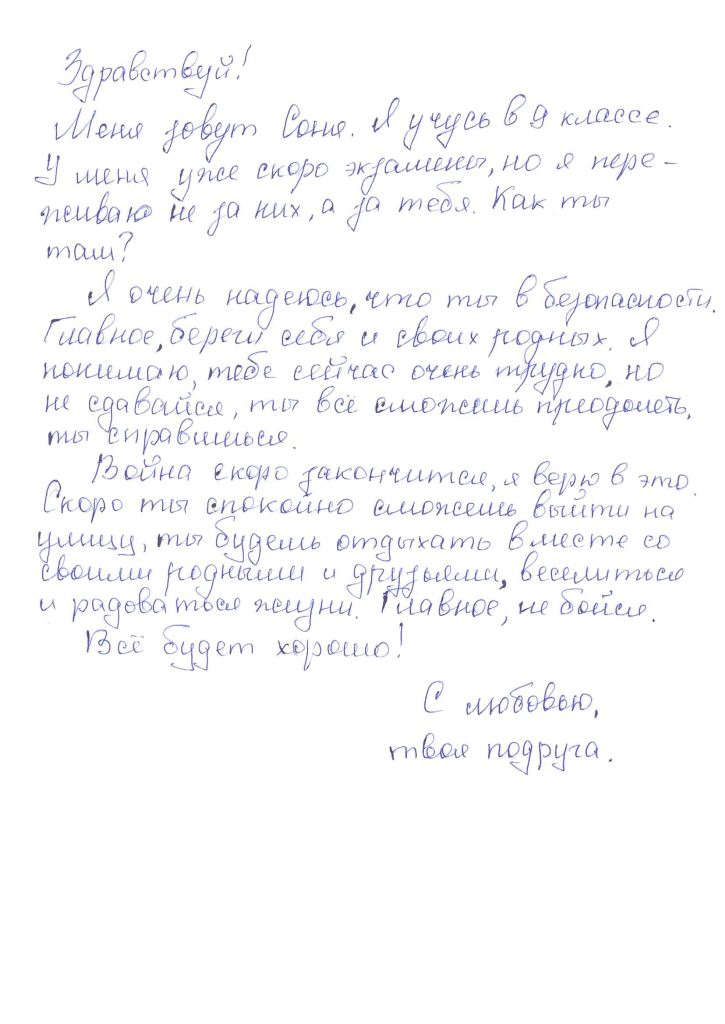 Здравствуй!
Меня зовут Соня. Я учусь в 9 классе.
У меня уже скоро экзамены, но я пере-
живаю не за них, а за тебя. Как ты
там?
Я очень надеюсь, что ты в безопасности.
Главное, береги себя и своих родных. Я
понимаю, тебе сейчас очень трудно, но
не сдавайся, ты всё сможешь преодолеть,
ты справишься.
Война скоро закончится, я верю в это.
Скоро ты спокойно сможешь выйти на
улицу, ты будешь отдыхать вместе со
своими родными и друзьями, веселиться
и радоваться жизни. Главное, не бойся.
Всё будет хорошо!
С любовью,
твоя подруга.